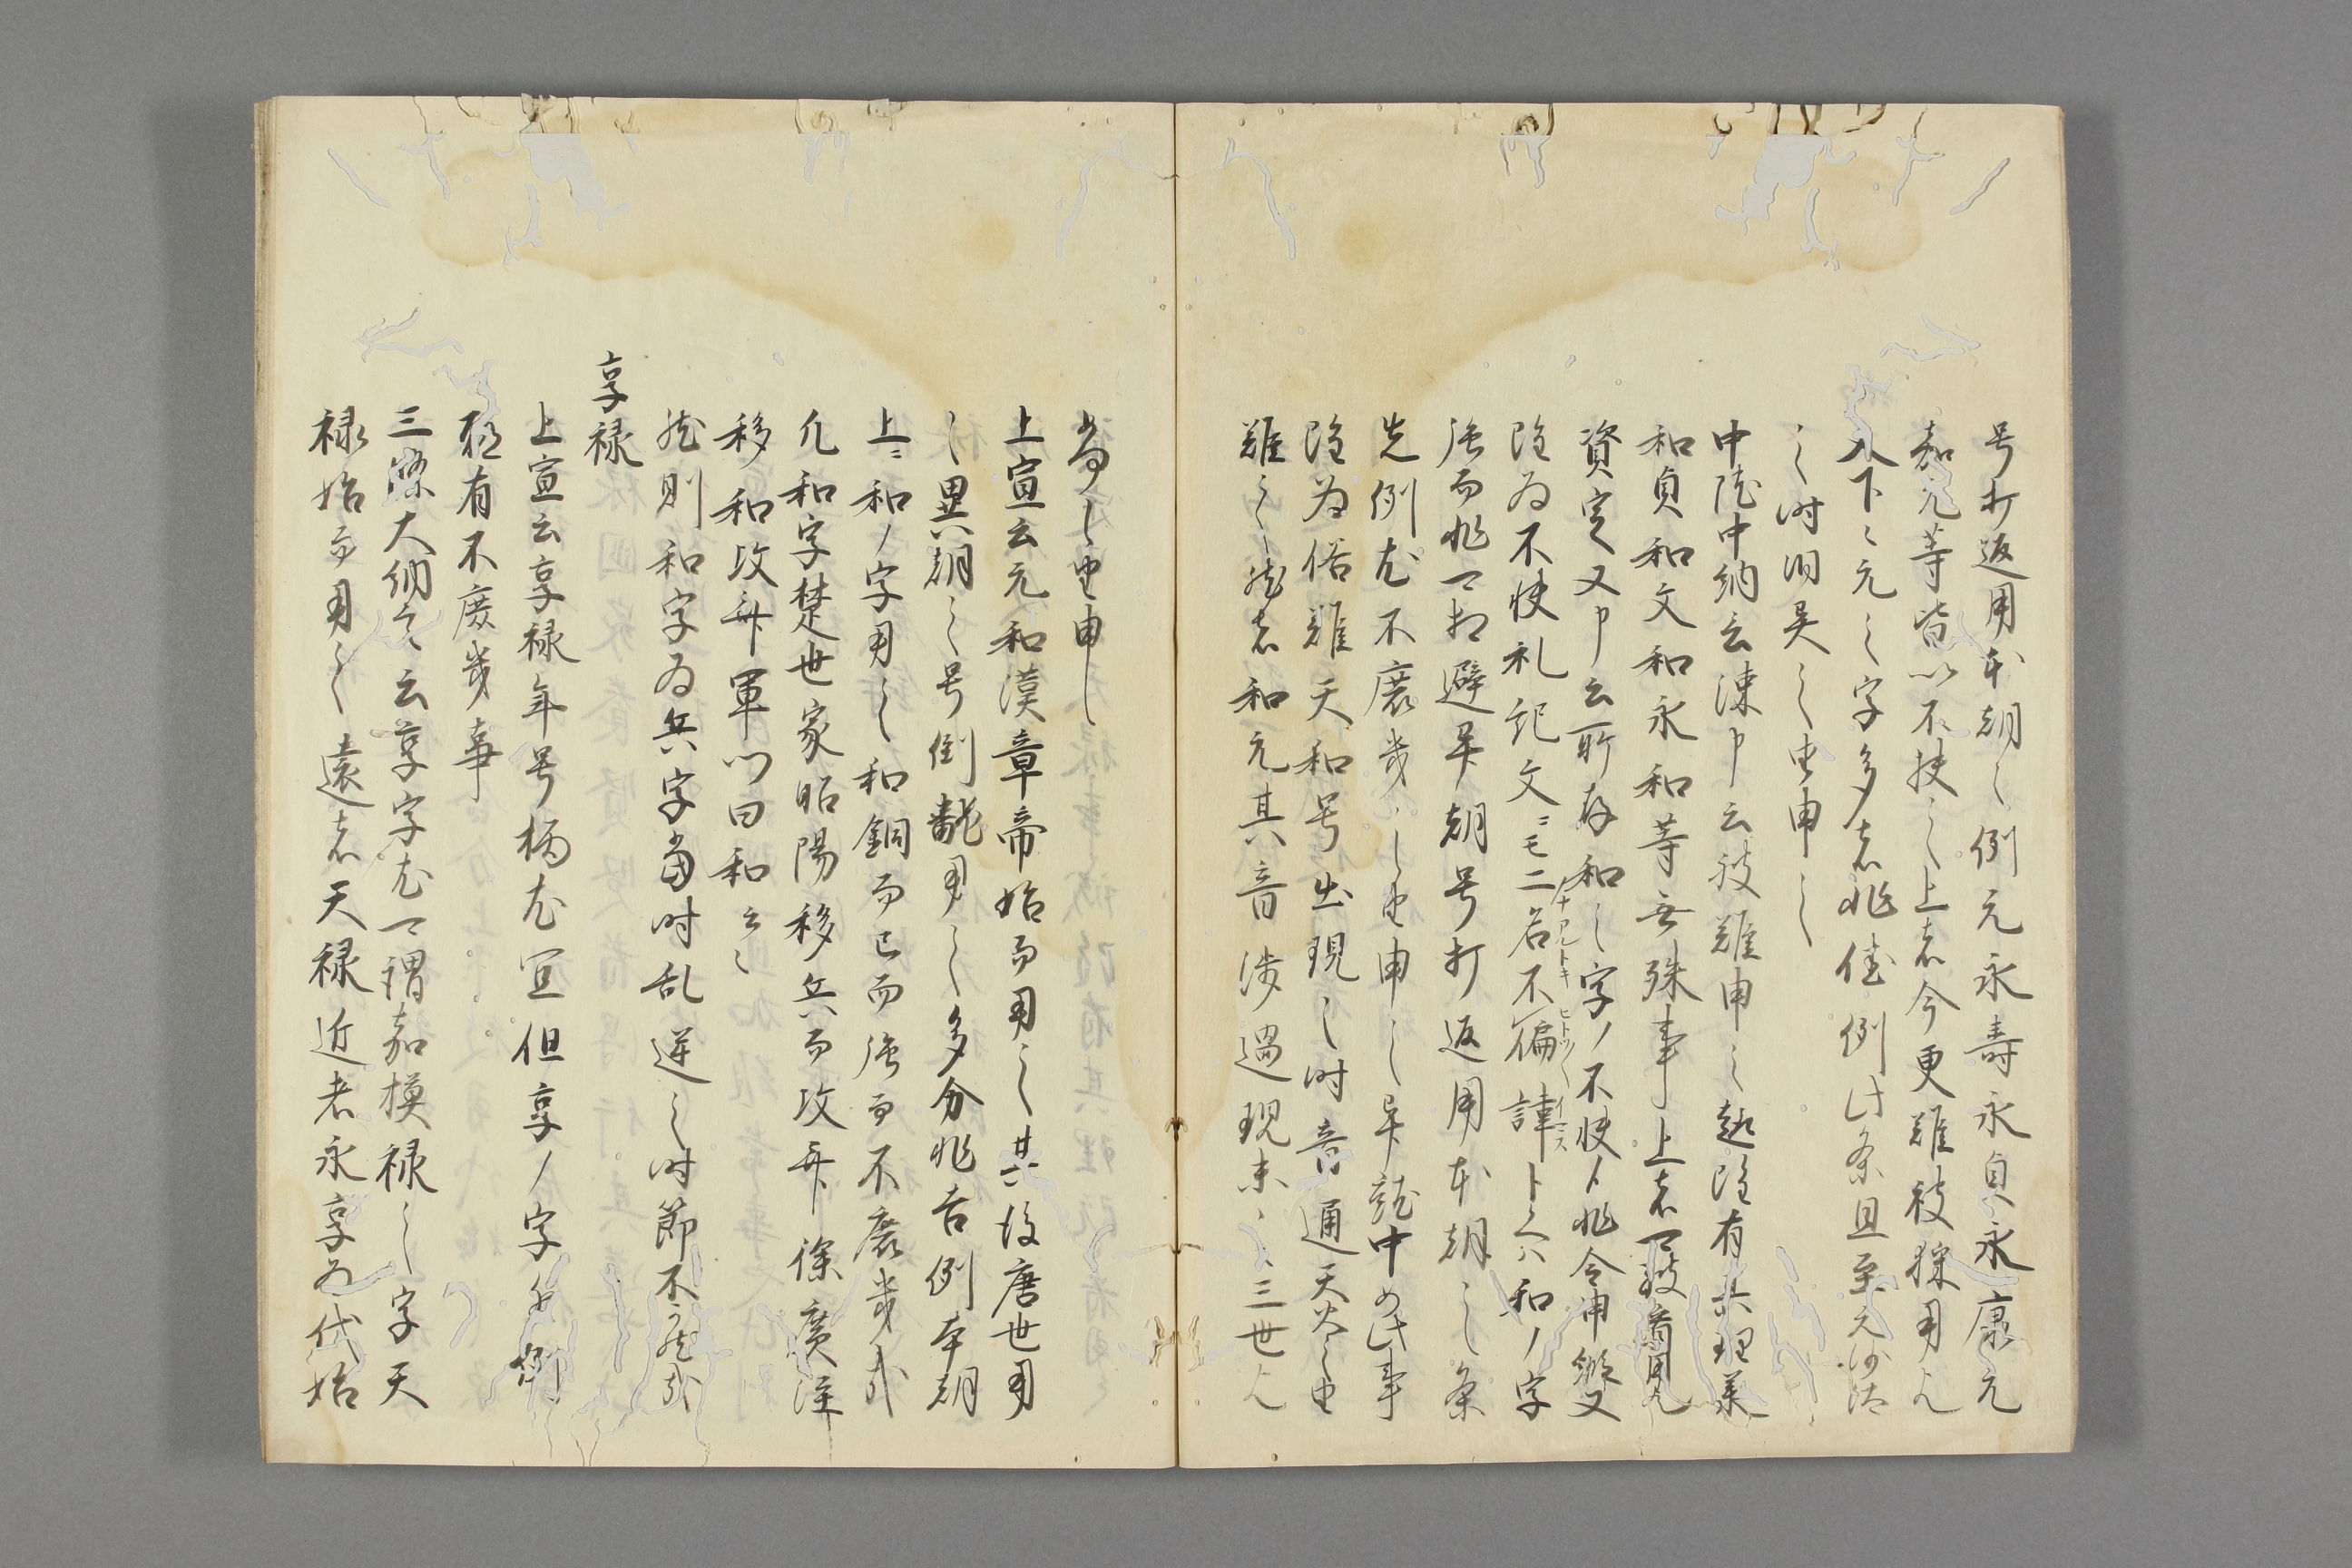 号打返用本朝之例元永寿永貞永康元
嘉元等皆以不快之上者今更難被採用歟
又下ニ元之字多者非佳例此条且至元沙汰
之時旧巳之由申之
中院中納云陳申云被難申之趣雖有其理業
和貞和文和永和等無殊事上者可被用歟
資定又申云所存和之字ノ不快ト非令申候又
雖為不快礼記文ニモ二名不偏諱トイヘハ和ノ字
強而非可相避異朝号打返用本朝之条
先例尤不庶幾之由申之異議中如此事
雖為俗難天和号出現之時音通天火之由
難之然者和元其音渉過現未之三世歟
如何之由申之
上宣云元和漢章帝始而用之其後唐世用
之異朝之号倒翻用之多分非吉例本朝
上ニ和ノ字用之和銅而已而強而不庶幾哉
凡和字楚世家昭陽移兵而攻斉徐広注
移和攻斉軍門曰和云々
然則和字為兵字当時乱逆之時節不可然哉
享禄
上宣云享禄年号柄尤宜但享ノ字先例
頗有不庶幾事
三条大納言云享字尤可謂嘉模禄之字天
禄始而用之遠者天禄近者永享為代始